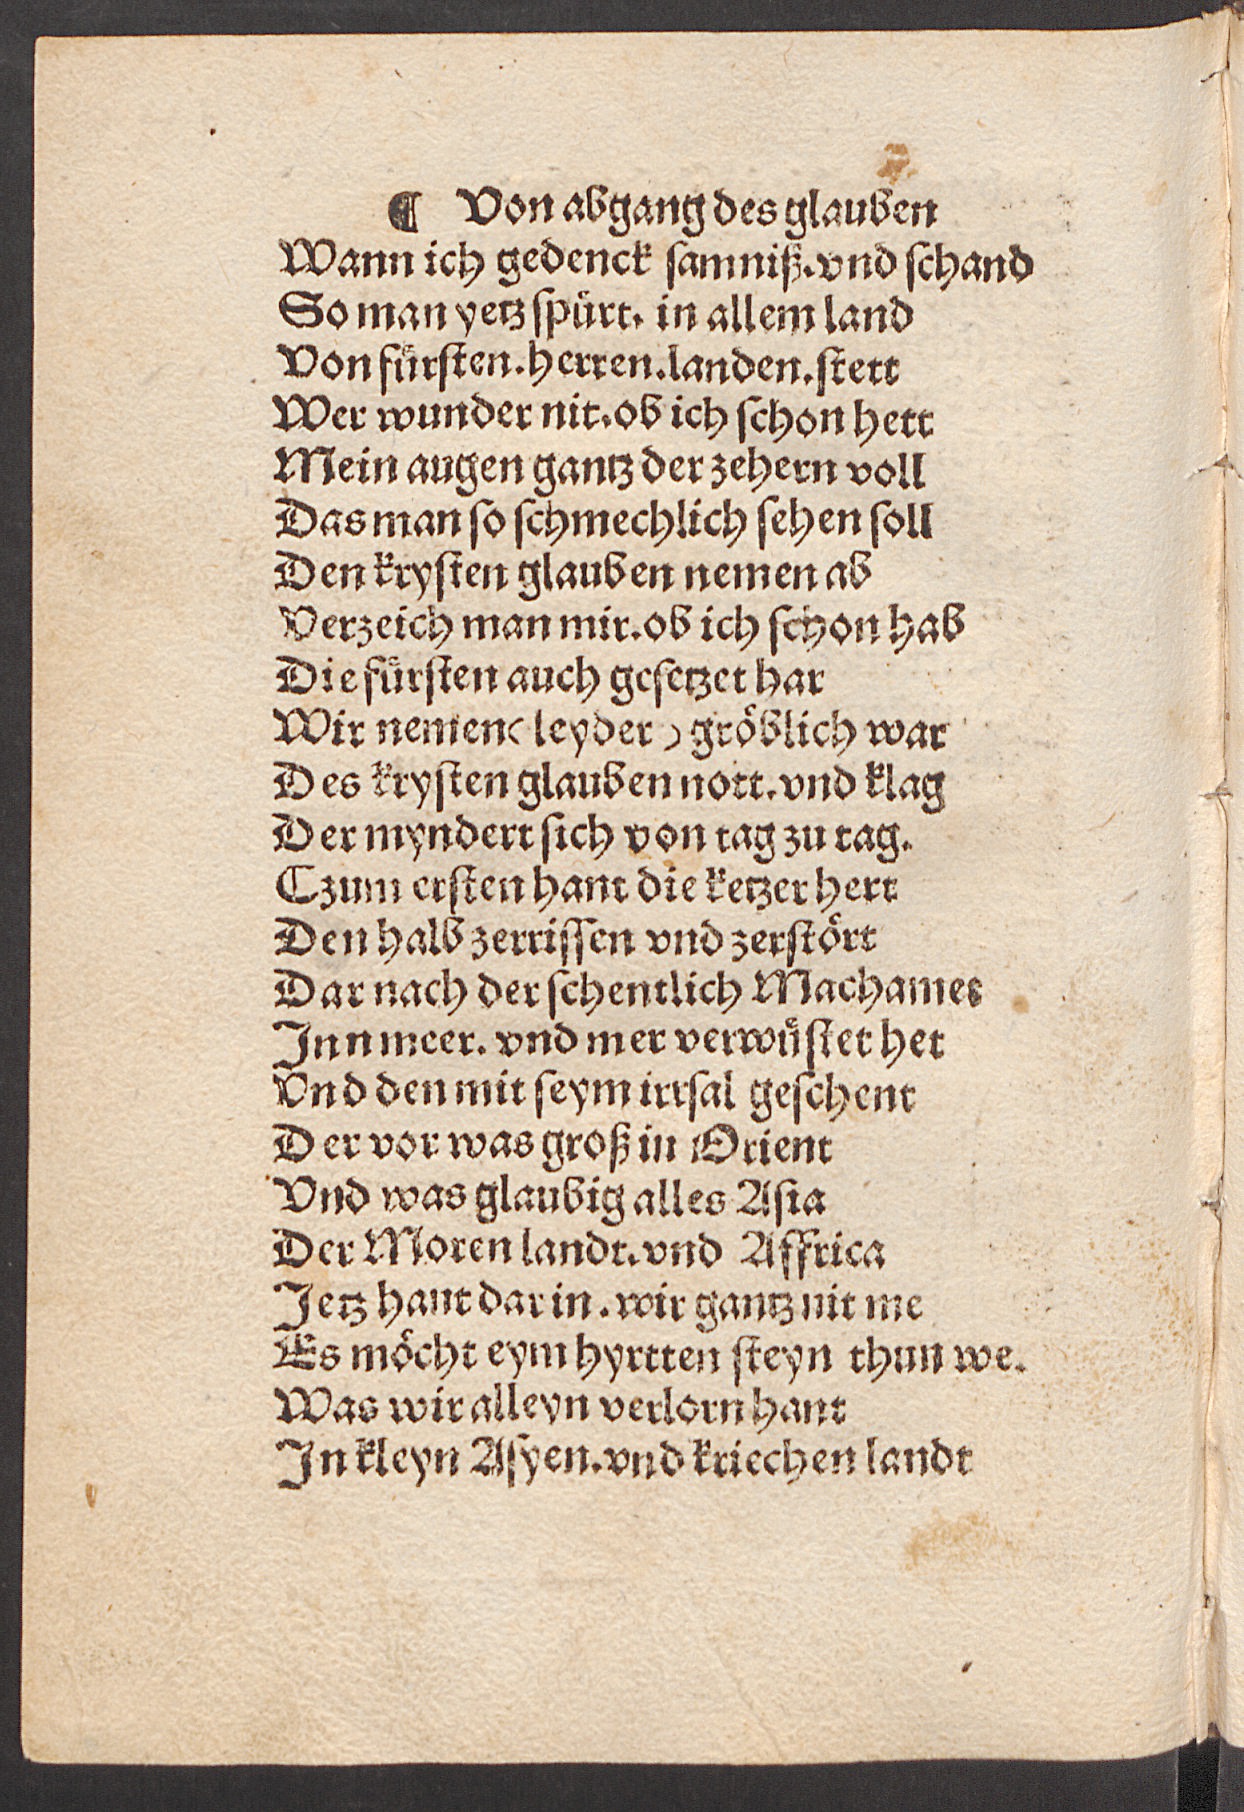 ¶ Von abgang des glauben
Wann ich gedenck samniß. vnd schand
So man yetz spürt. in allem land
Von fürsten. herren. landen. stett
Wer wunder nit. ob ich schon hett
Mein augen gantz der zehern voll
Das man so schmechlich sehen soll
Den krysten glauben nemen ab
Verzeich man mir. ob ich schon hab
Die fürsten auch gesetzet har
Wir nemen (leyder) gröblich war
Des krysten glauben nott. vnd klag
Der myndert sich von tag zu tag.
Czum ersten hant die ketzer hert
Den halb zerrissen vnd zerstört
Dar nach der schentlich Machamet
Inn meer. vnd mer verwüstet het
Vnd den mit seym irrsal geschent
Der vor was groß in Orient
Vnd was glaubig alles Asia
Der Moren landt. vnd Affrica
Jetz hant dar in. wir gantz nit me
Es möcht eym hyrtten steyn thun we.
Was wir alleyn verlorn hant
In kleyn Asyen. vnd kriechen landt